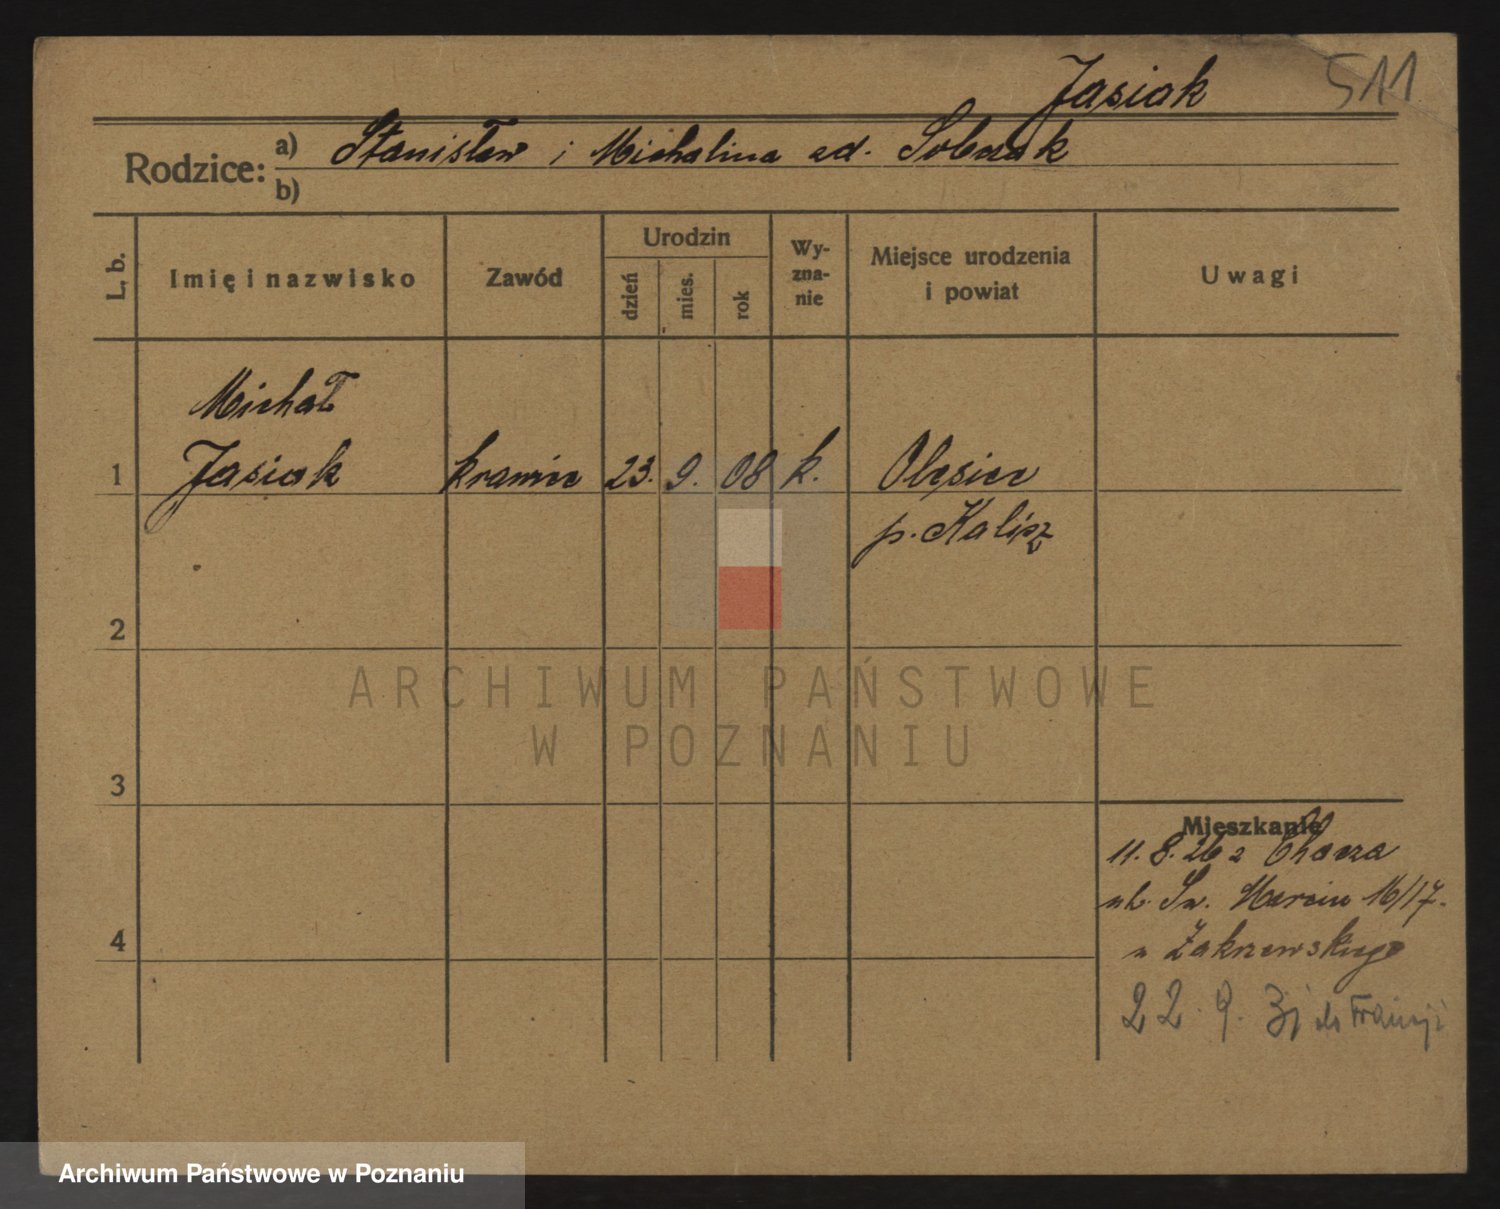 Jasiak 511
Rodzice: a) Stanisław i Michalina zd. Sobczak
b)
L. b. Imię i nazwisko Zawód Urodzin dzień mies. rok Wyznanie Miejsce urodzenia i powiat Uwagi
Michał
1 Jasiak krawiec 23. 9. 08 k. Olesiec
p. Kalisz
2
ARCHIWUM PAŃSTWOWE
W POZNANIU
3
Mieszkanie
11. 8. 26 z Chocza
ul. Św. Marcin 16/17.
u Zakrzewskiego
4
22. 9. 31 do Francji
Archiwum Państwowe w Poznaniu